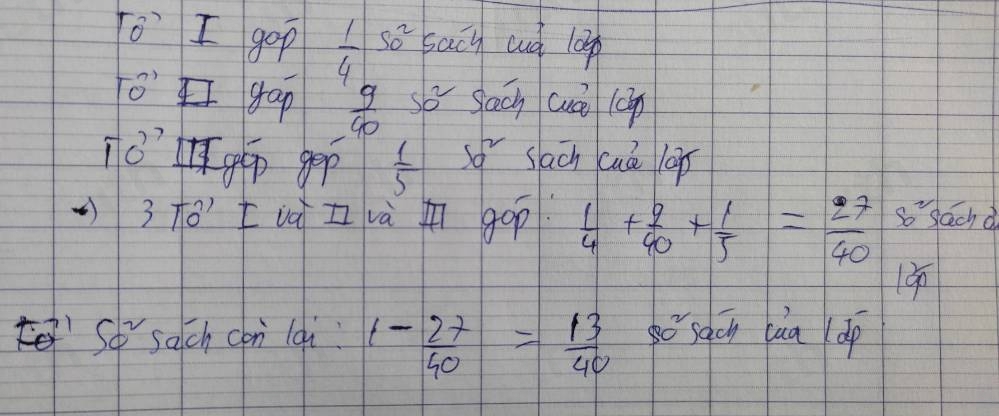 Tổ I góp 1/4 số sách của lớp
Tổ II góp 9/40 số sách của lớp
Tổ III góp góp 1/5 số sách của lớp
→) 3 Tổ I và II và III góp: 1/4 + 9/40 + 1/5 = 27/40 số sách
lớp
Tổ Số sách còn lại: 1 - 27/40 = 13/40 số sách của lớp